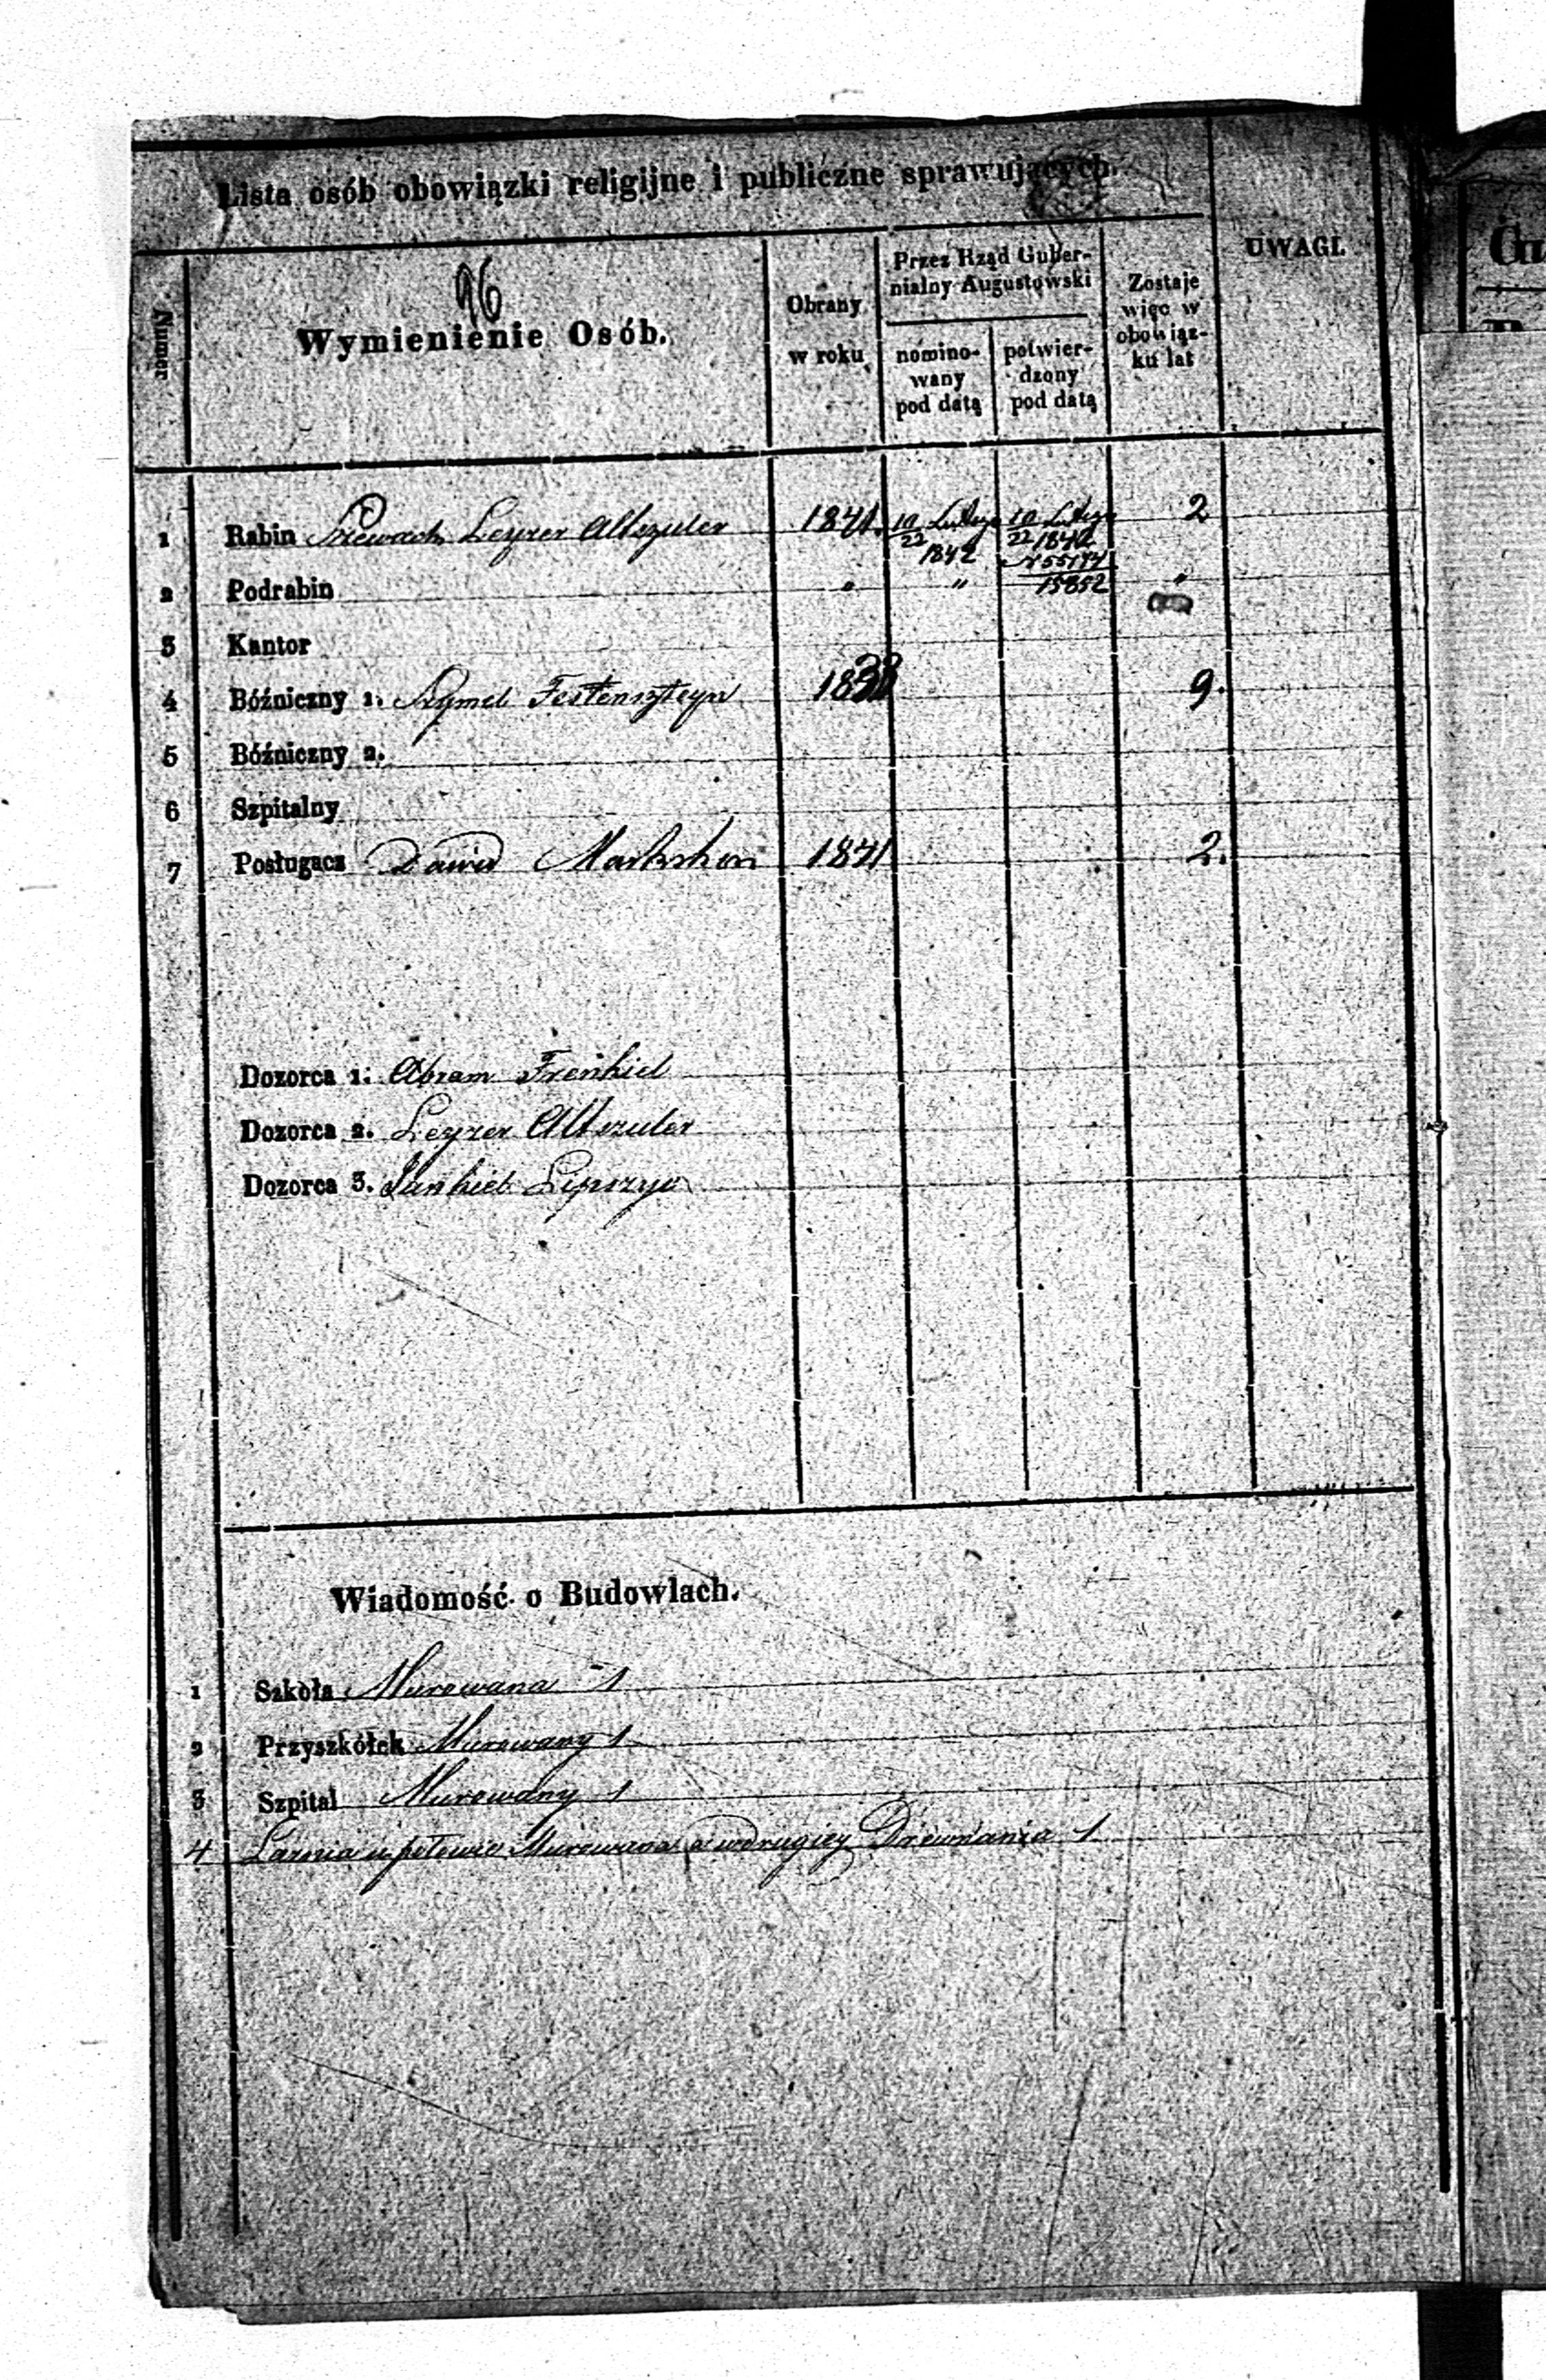 Lista osób obowiązki religijne i publiczne sprawujących.
96
Numer
Wymienienie Osób.
Obrany w roku
Przez Rząd Guber-
nialny Augustowski
nomino-
wany
pod datą
potwier-
dzony
pod datą
Zostaje
więc w
obowiąz-
ku lat
UWAGI.
1 Rabin Szewach Leyzer Altszuler 1841. 10/22 Lutego 1842 10/22 Lutego 1842 2
2 Podrabin " " N 55174/15852 "
3 Kantor
4 Bóźniczny 1. Szymel 9.
5 Bóźniczny 2.
6 Szpitalny
7 Posługacz Dawid 1841 2.
Dozorca 1. Abram Frenkiel
Dozorca 2. Leyzer Altszuler
Dozorca 3. Jankiel
Wiadomość o Budowlach.
1 Szkoła Murowana 1
2 Przyszkółek Murowany 1
3 Szpital Murowany 1
4 Łaznia w połowie Murowana a w drugiey Drewniana 1
Gu